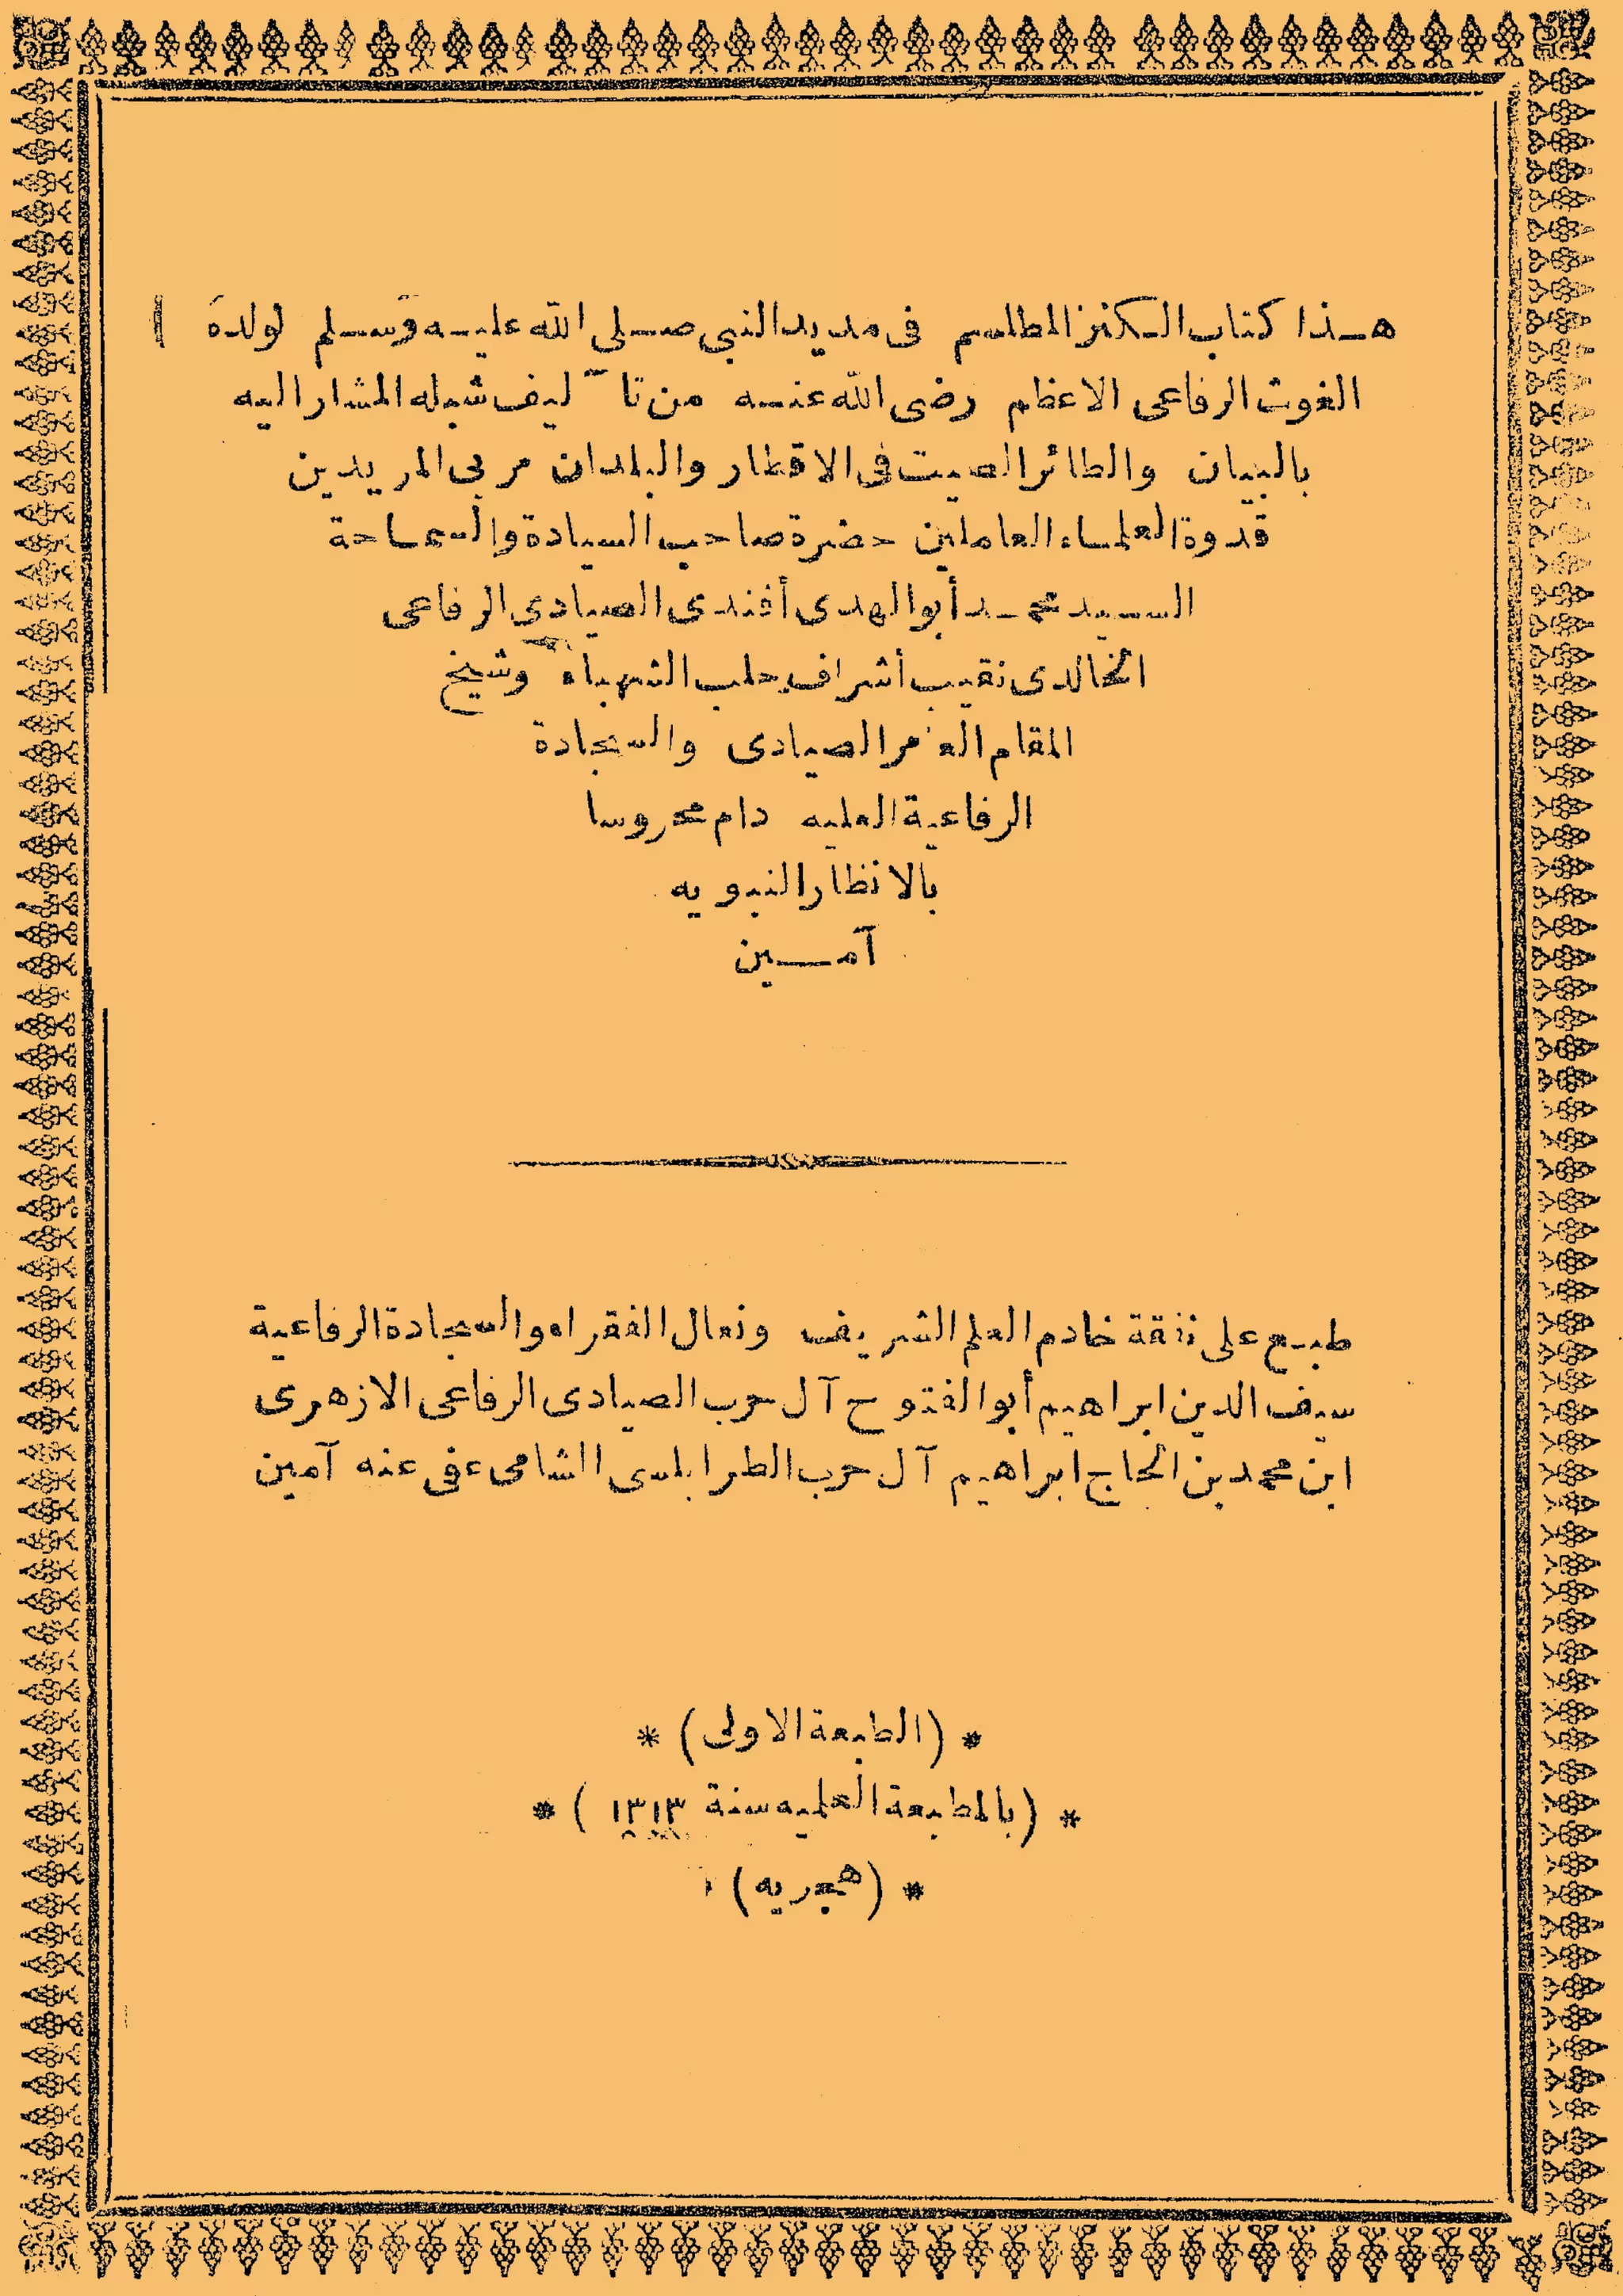 هذا كتاب الكنز المطلسم فى مد يد النبى صلى الله عليه وسلم لولده
الغوث الرفاعى الاعظم رضى الله عنه من تأليف شبله المشار اليه
بالبيان والطائر الصيت فى الاقطار والبلدان مربى المريدين
قدوة العلماء العاملين حضرة صاحب السيادة والسماحة
السيد محمد أبو الهدى أفندى الصيادى الرفاعى
الخالدى نقيب أشراف حلب الشهباء وشيخ
المقام العامر الصيادى والسجادة
الرفاعية العليه دام محروسا
بالانظار النبويه
آمين
طبع على نفقة خادم العلم الشريف ونعال الفقراء والسجادة الرفاعية
سيف الدين ابراهيم أبو الفتوح آل حرب الصيادى الرفاعى الازهرى
ابن محمد بن الحاج ابراهيم آل حرب الطرابلسى الشامى عفى عنه آمين
* (الطبعة الاولى) *
* (بالمطبعة العلميه سنة ١٣١٣) *
* (هجريه)